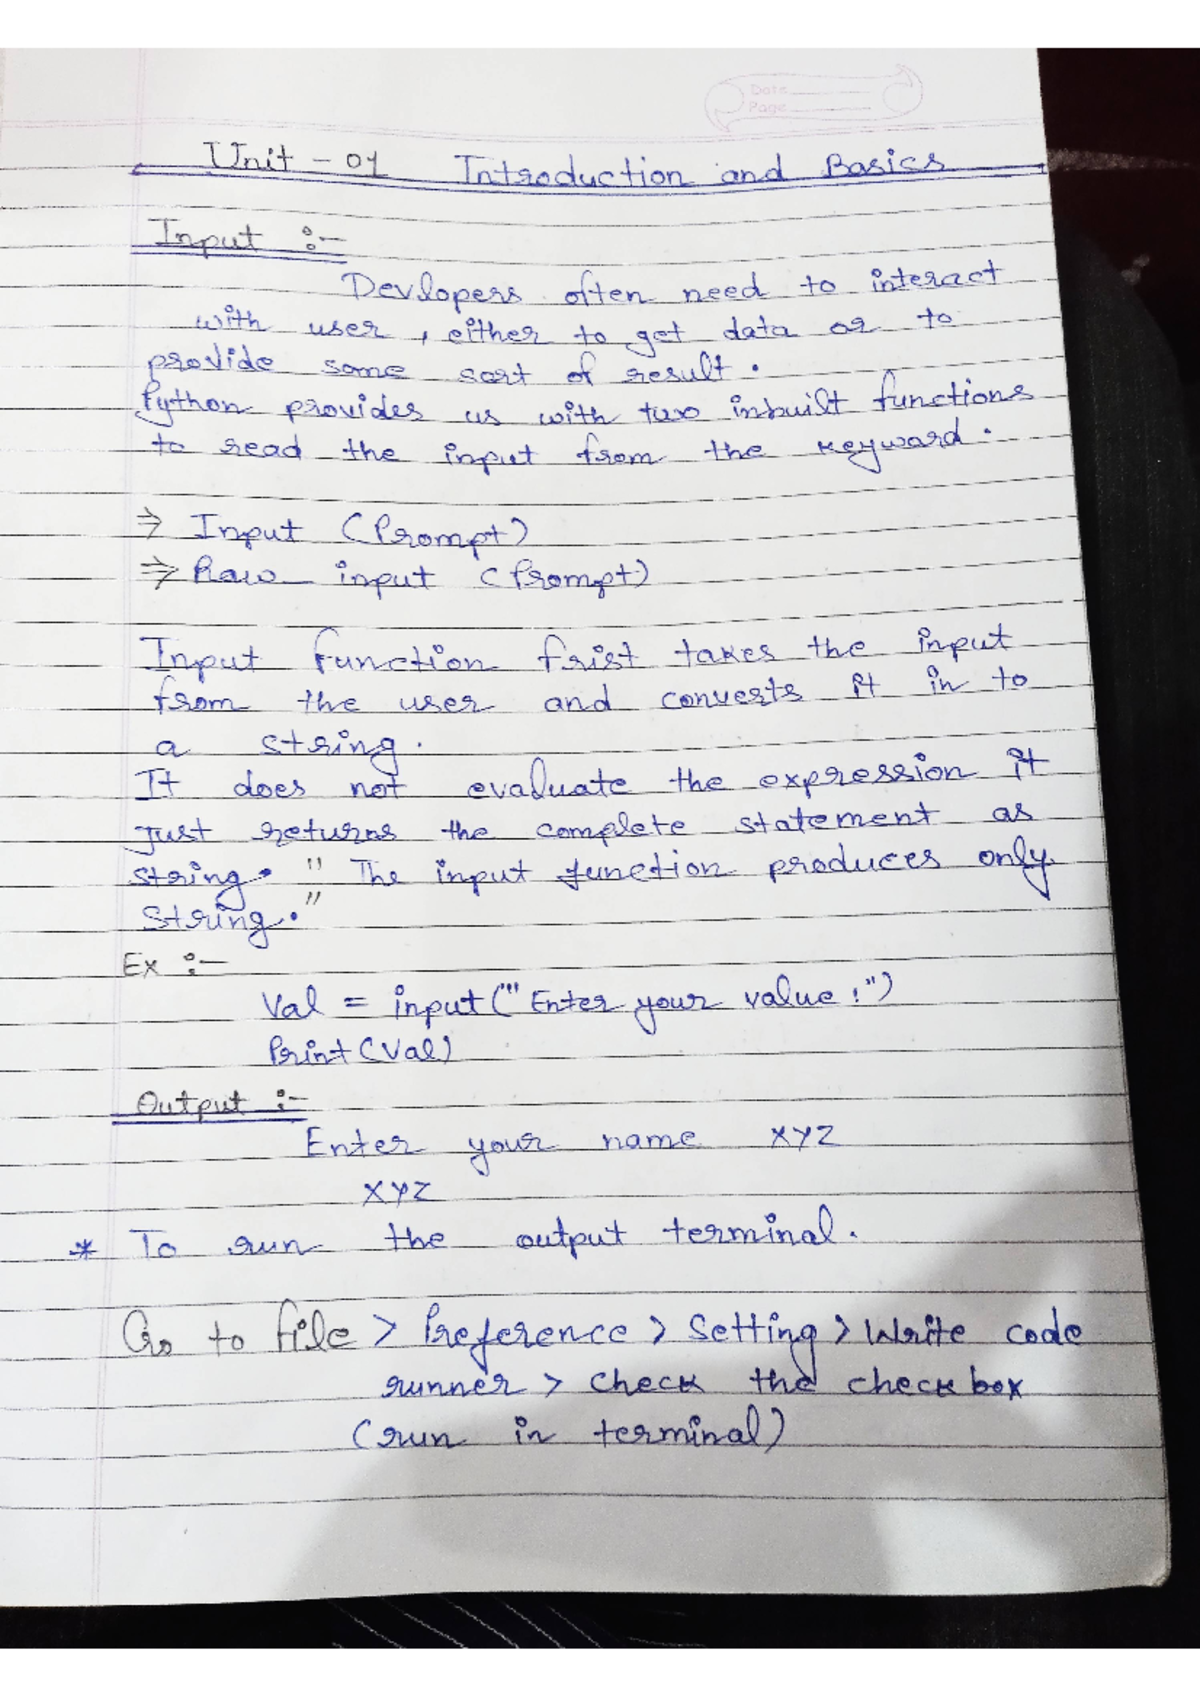 Date
Page
Unit - 01 Introduction and Basics
Input :-
Devlopers often need to interact
with user, either to get data or to
provide some sort of result.
Python provides us with two inbuilt functions
to read the input from the keyward.
⇒ Input (Prompt)
⇒ Raw input (Prompt)
Input function frist takes the input
from the user and converts it in to
a string.
It does not evaluate the expression it
just returns the complete statement as
string. " The input function produces only
string."
Ex :-
Val = input("" Enter your value :")
Print (Val)
Output :-
Enter your name XYZ
XYZ
* To run the output terminal.
Go to file > Preference > Setting > Write code
runner > check the check box
(run in terminal)